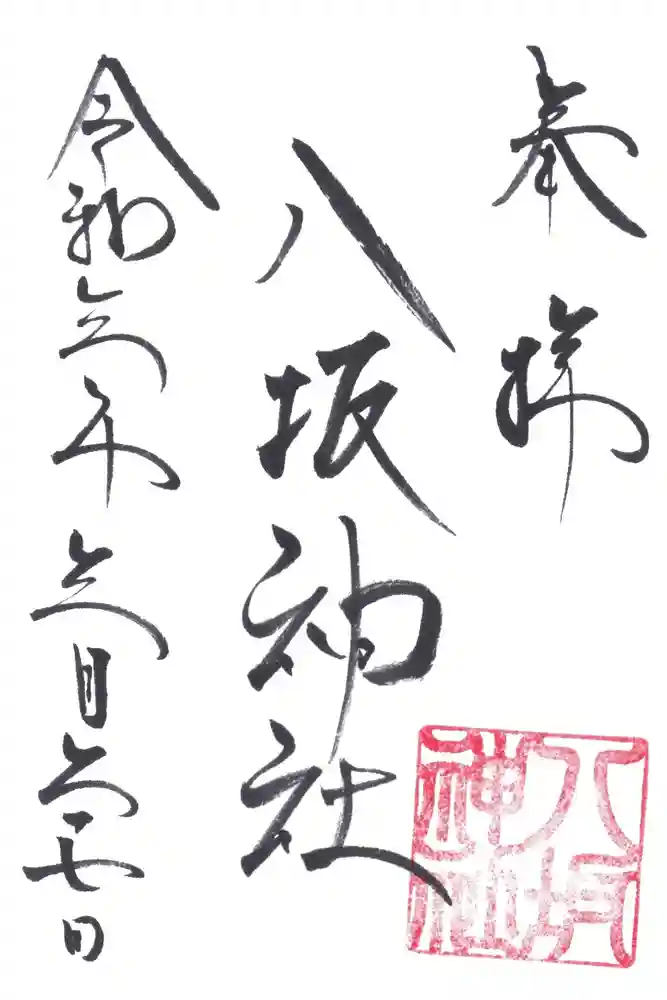 奉拝
八坂神社
令和六年六月七日
八坂神社